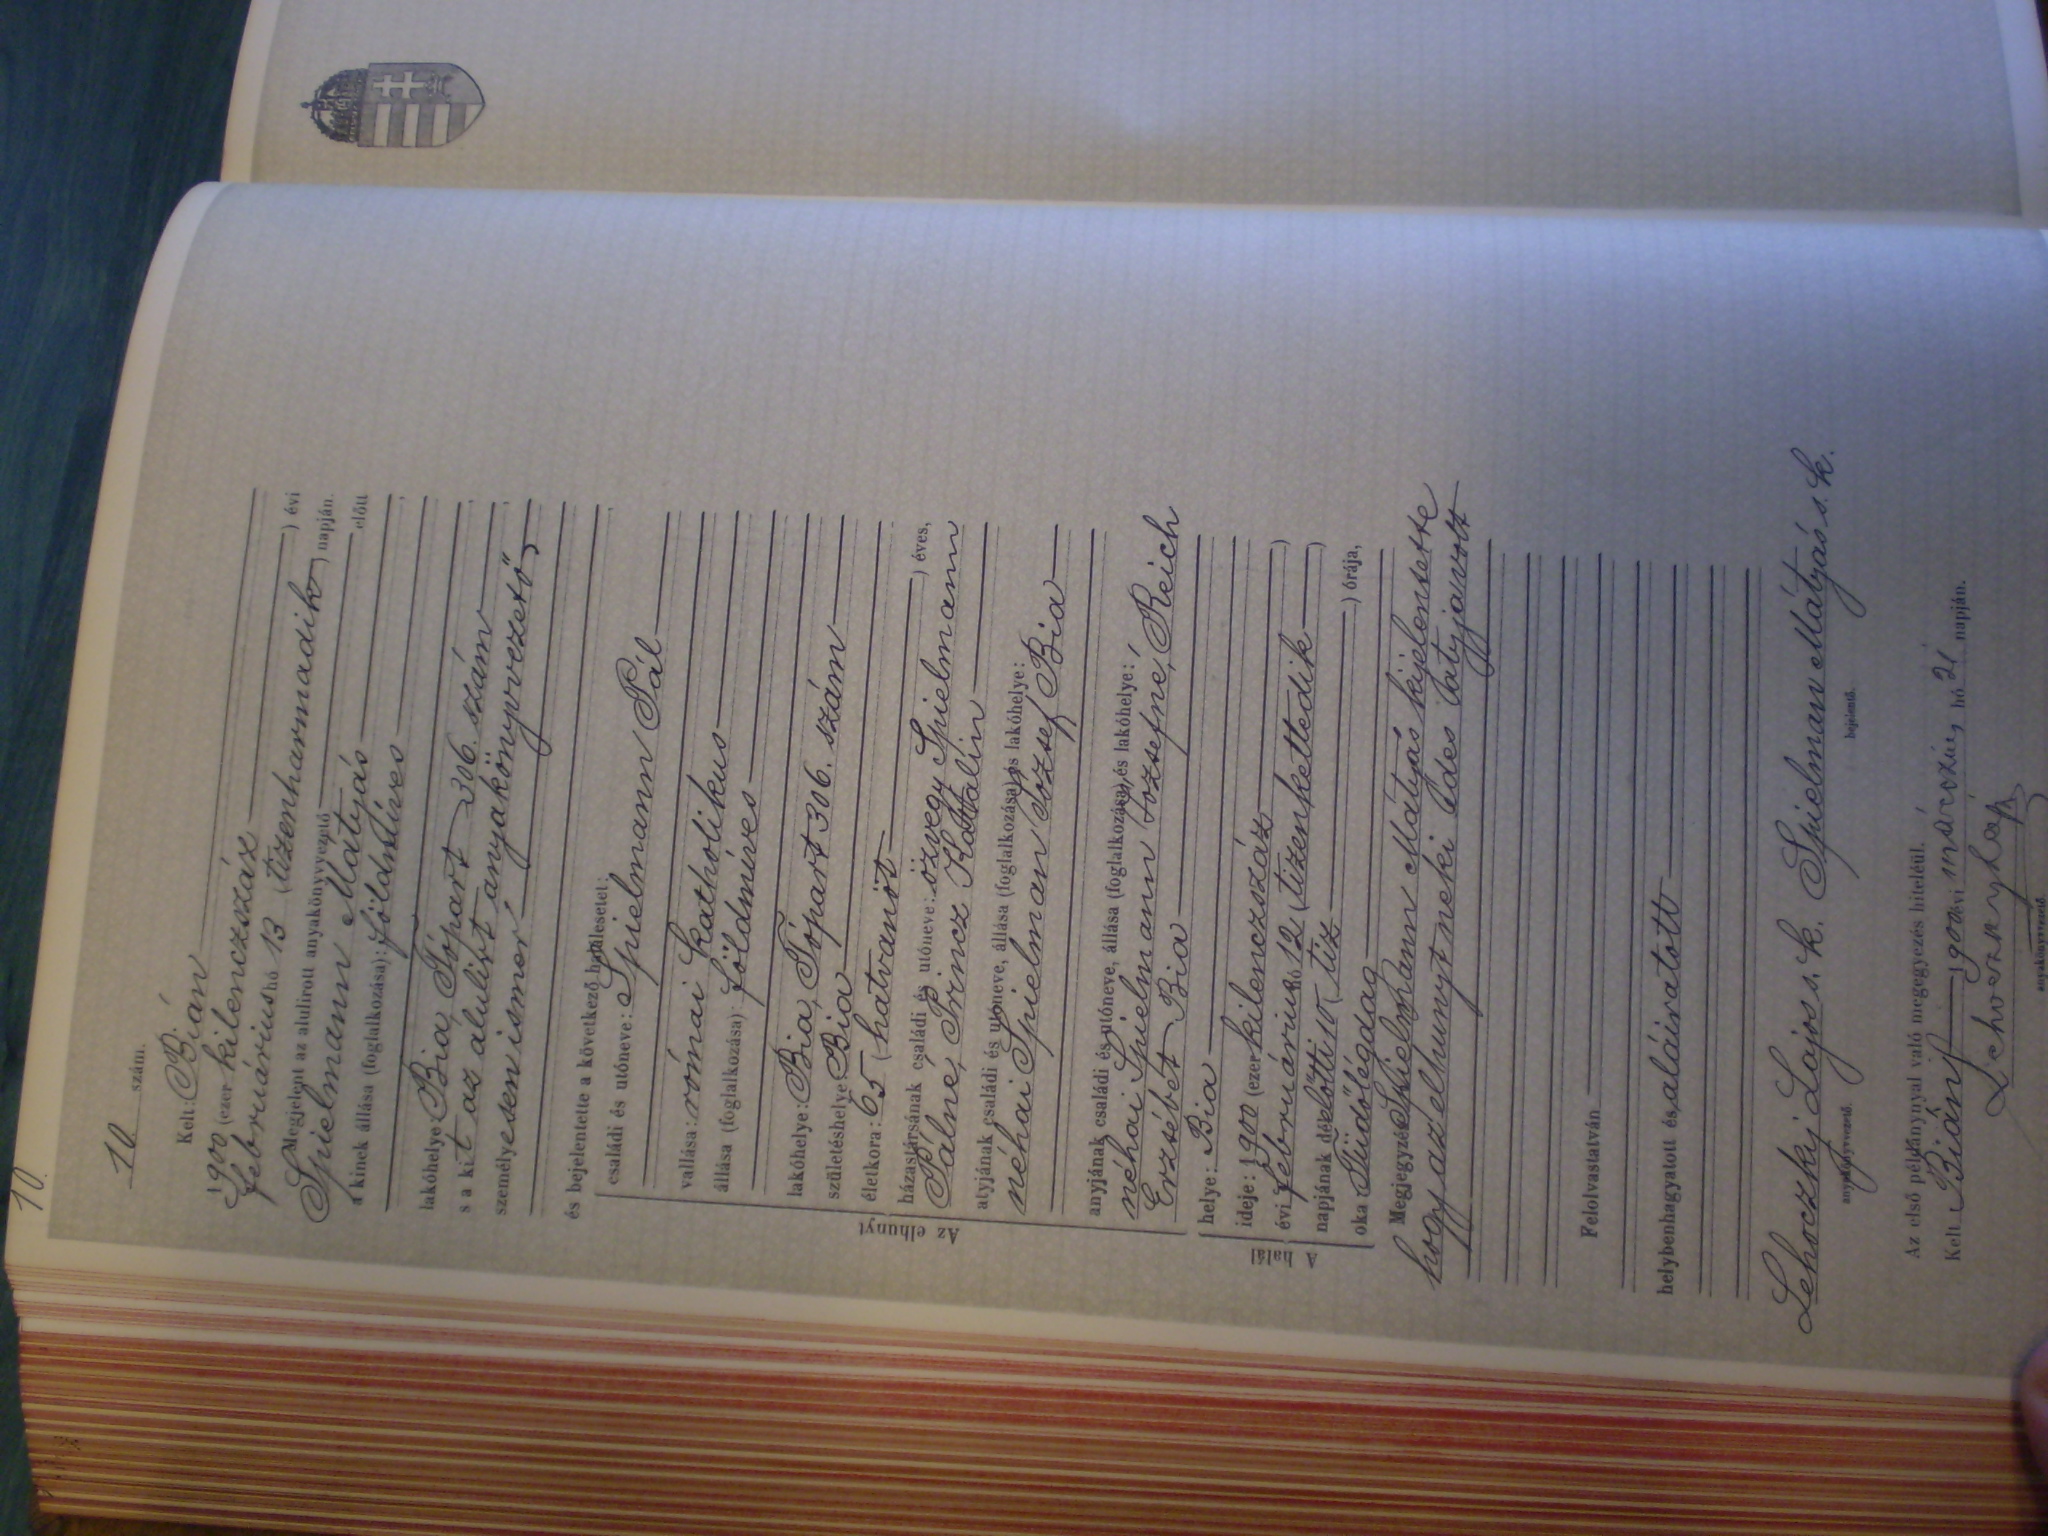 10.
10 szám.
Kelt: Bián
1900 (ezer kilenczszáz
) évi
februárius hó 13 (tizenharmadik) napján.
Megjelent az alulirott anyakönyvvezető előtt
Spielmann Mátyás
a kinek állása (foglalkozása): földmíves
lakóhelye Bia, Tópart 306. szám
s a kit az alulirt anyakönyvvezető
személyesen ismer,
és bejelentette a következő halálesetet:
Az elhunyt
családi és utóneve: Spielmann Pál
vallása: római katholikus
állása (foglalkozása): földmíves
lakóhelye: Bia, Tópart 306. szám
születéshelye Bia
életkora: 65 (hatvanöt) éves,
házastársának családi és utóneve: özvegy Spielmann
Pálné, Princz Kattalin
atyjának családi és utóneve, állása (foglalkozása) és lakóhelye:
néhai Spielman József Bia
anyjának családi és utóneve, állása (foglalkozása) és lakóhelye:
néhai Spielmann Józsefné, Reich
Erzsébet Bia
A halál
helye: Bia
ideje: 1900 (ezer kilenczszáz)
évi februárius hó 12 (tizenkettedik)
napjának délelőtti 10 (tiz) órája,
oka Tüdőlégdag
Megjegyzés: Spielmann Mátyás kijelentette
hogy az elhunyt neki édes atyja volt
Felolvastatván
helybenhagyatott és aláiratott
Lehoczkj Lajos s. k. Spielman Mátyás s. k.
anyakönyvvezető. bejelentő.
Az első példánynyal való megegyezés hiteléül.
Kelt Bián 1900 évi márczius hó 21 napján.
anyakönyvvezető.